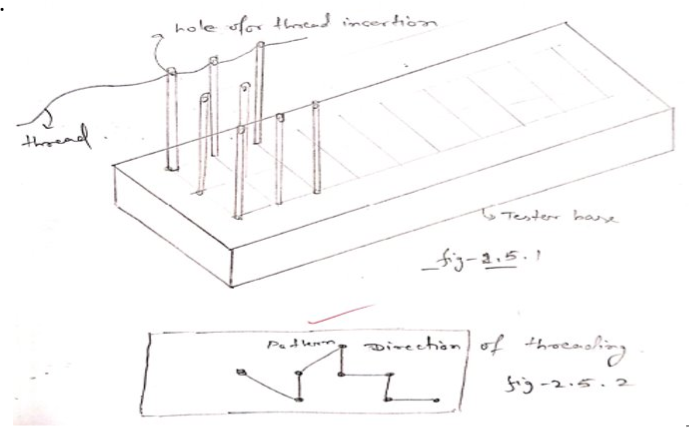 hole for thread insertion
thread.
Tester base
fig-2.5.1
Pattern Direction of threading
fig-2.5.2